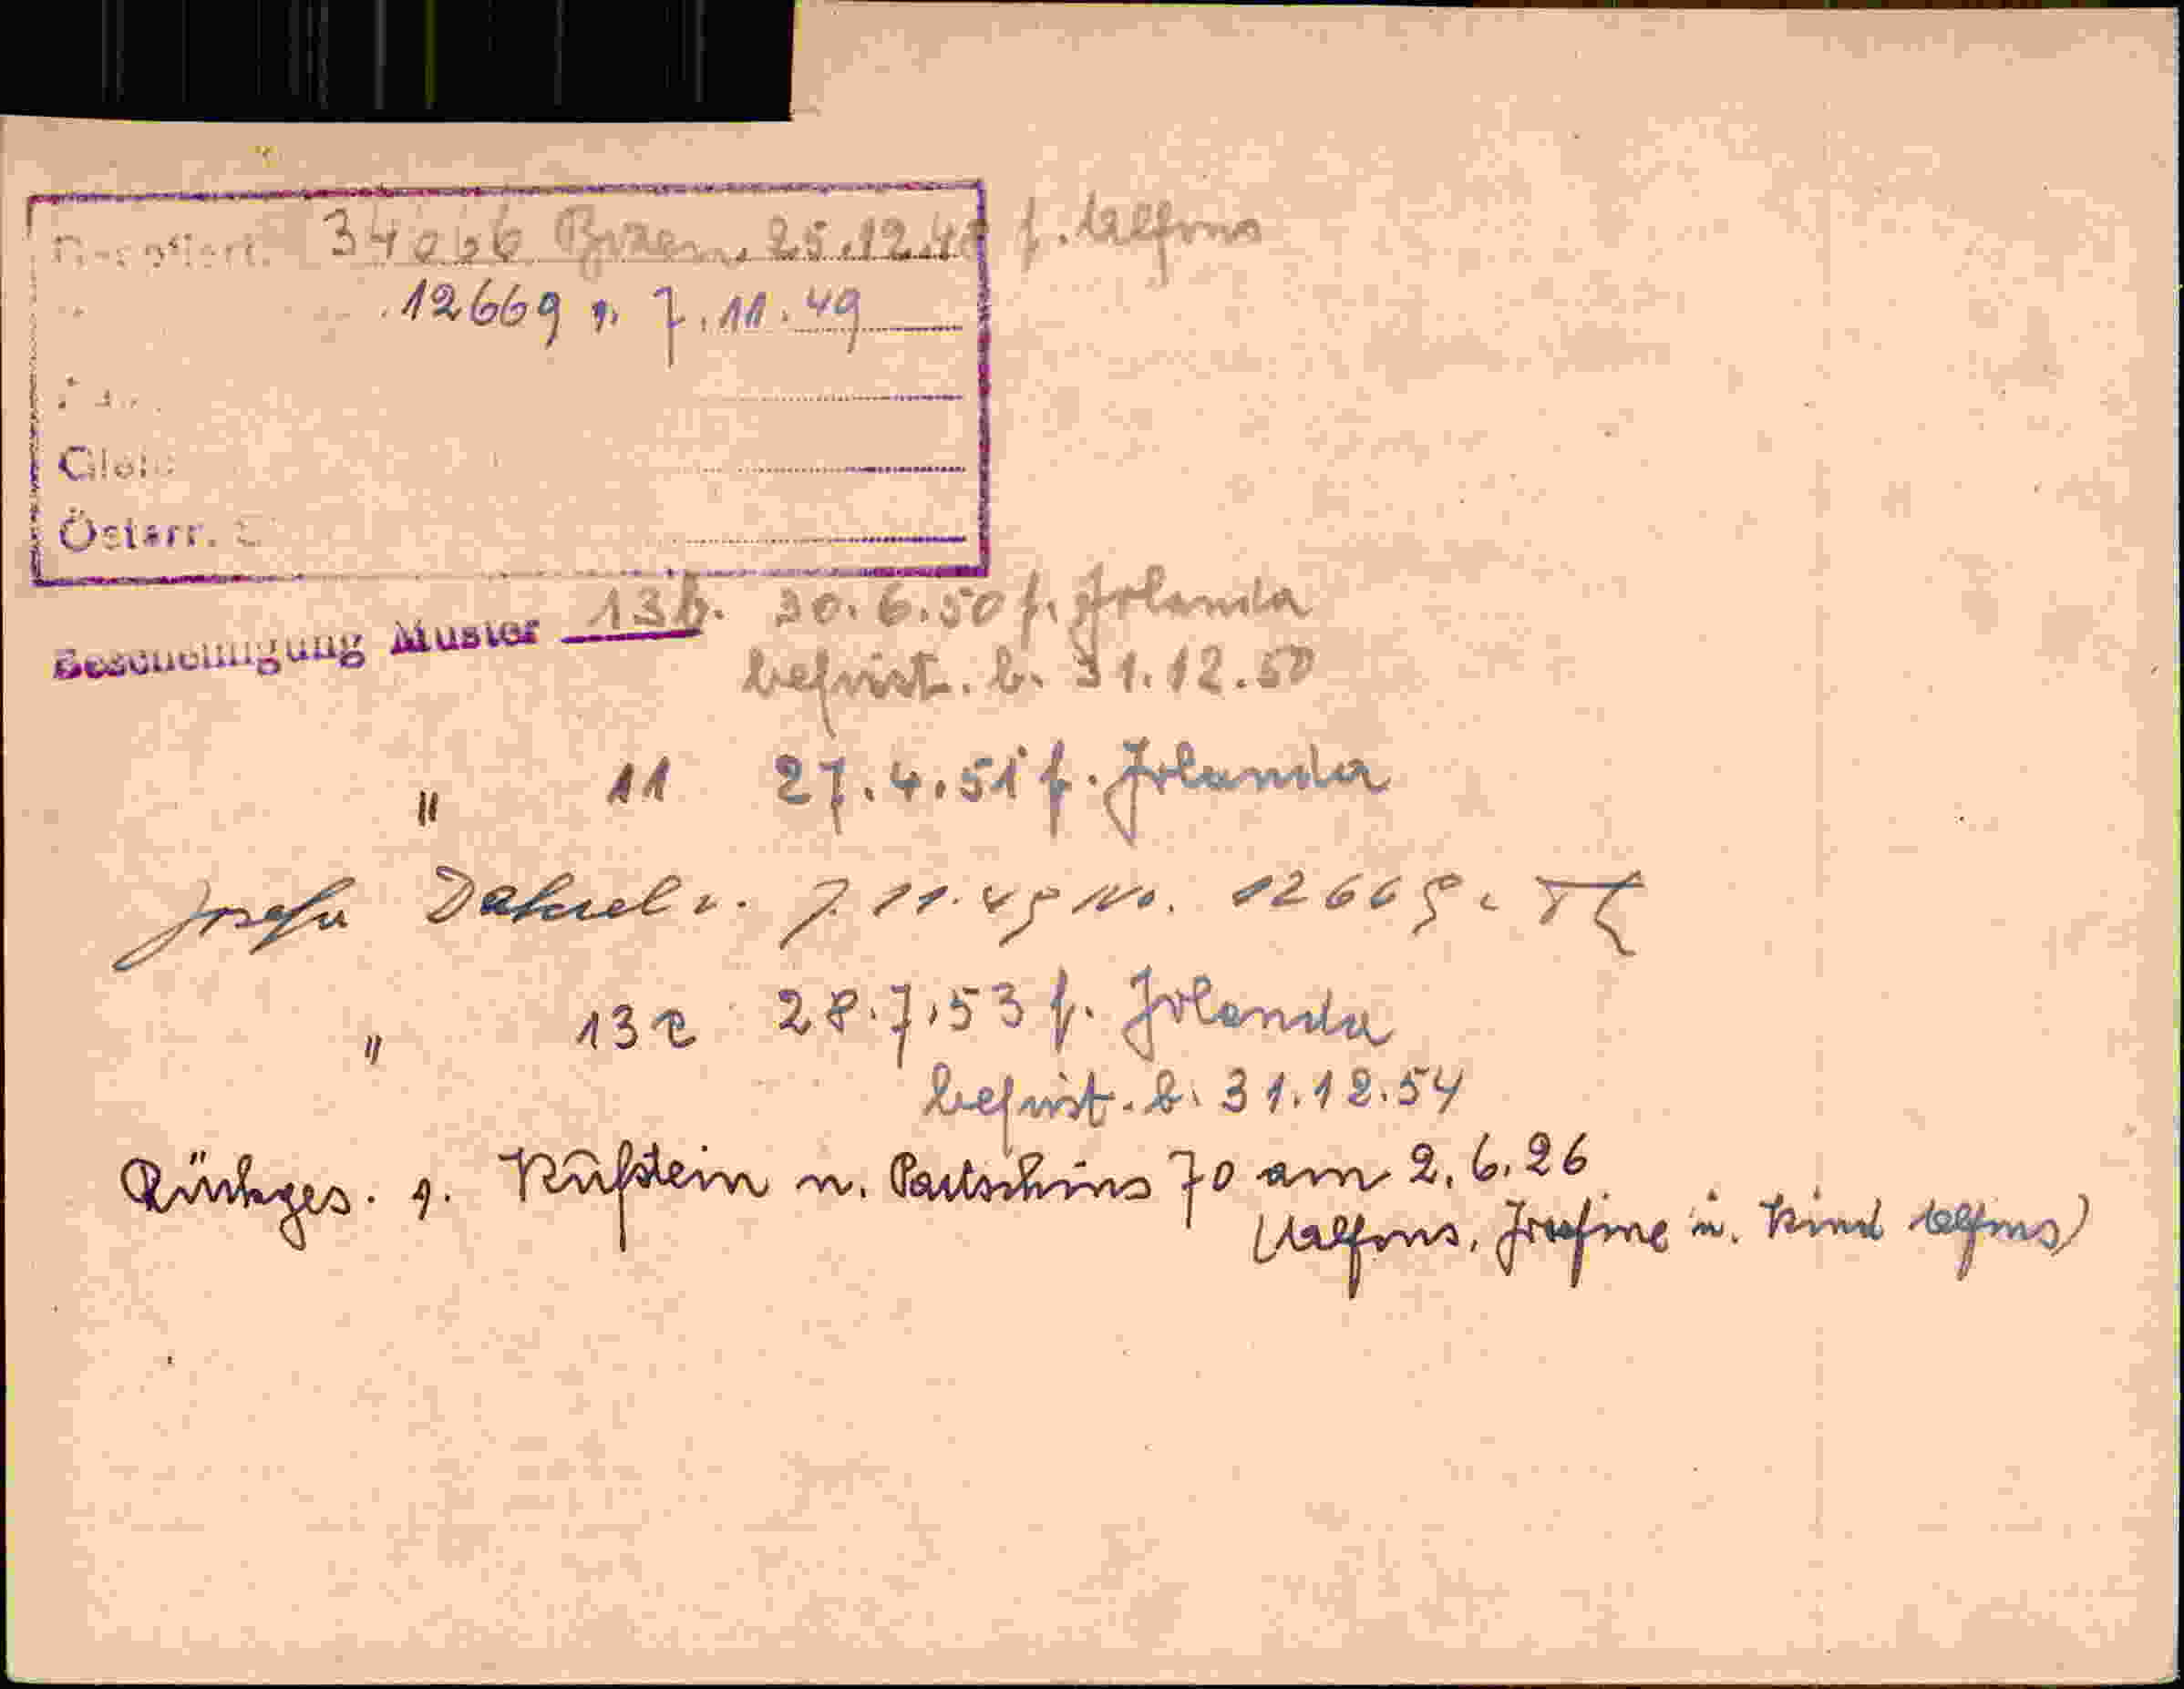 34066 Bozen, 25.12.48 f. Alfons
12669 v. 7.11.49
Österr.
Bescheinigung Muster 13b. 30.6.50 f. Jolanda
befrist. b. 31.12.50
" 11 27.4.51 f. Jolanda
Josefa Dekret v. 7.11.49 No. 12669
" 13c 28.7.53 f. Jolanda
befrist. b. 31.12.54
Rückges. v. Kufstein n. Partschins 70 am 2.6.26
(Alfons, Josefine u. Kind Alfons)